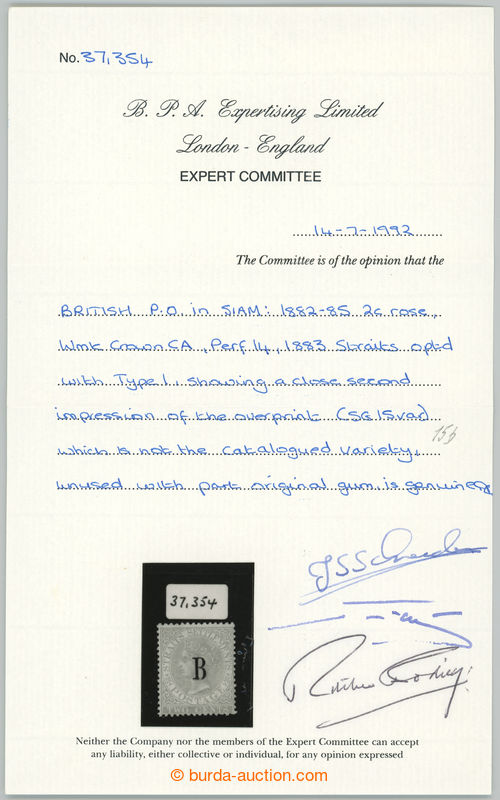 No. 37,354
B. P. A. Expertising Limited
London - England
EXPERT COMMITTEE
14-7-1992
The Committee is of the opinion that the
BRITISH P.O. in SIAM: 1882-85 2c rose,
Wmk Crown CA, Perf 14, 1883 Straits optd
with Type 1, showing a close second
impression of the overprint (SG15var)
15b
which is not the catalogued variety,
unused with part original gum is genuine
37,354
STRAITS SETTLEMENTS
B
POSTAGE
Neither the Company nor the members of the Expert Committee can accept
any liability, either collective or individual, for any opinion expressed
© burda-auction.com